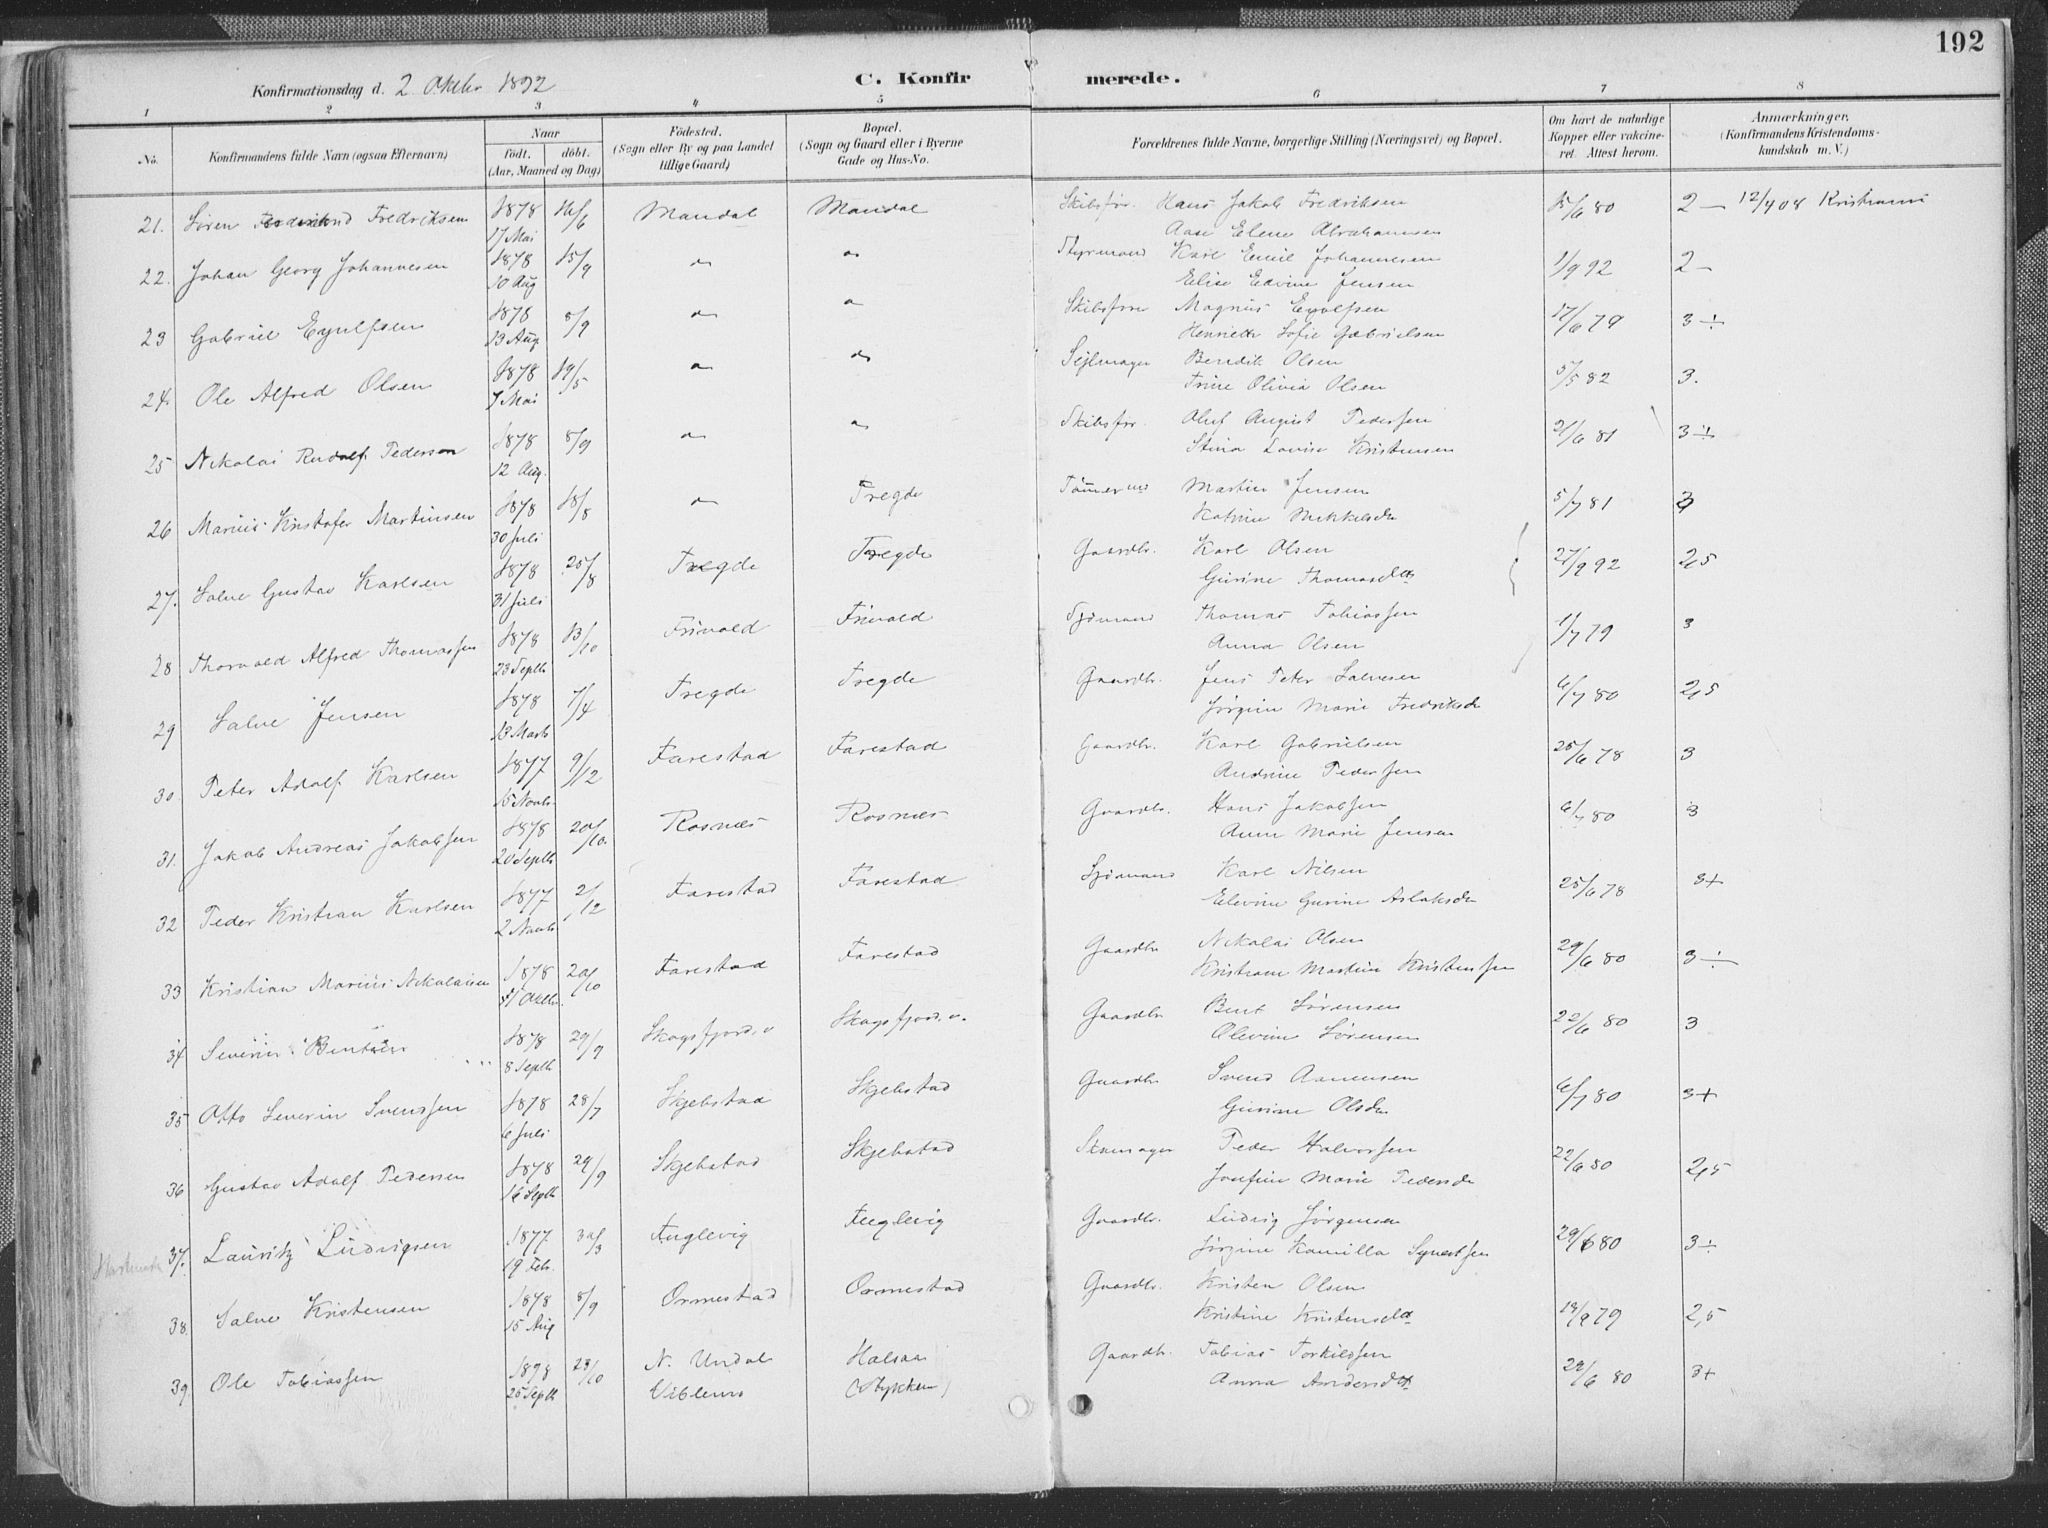 192
Konfirmationsdag d. 2 Oktbr 1892
C. Konfirmerede.
1 2 3 4 5 6 7 8
No. Konfirmandens fulde Navn (ogsaa Efternavn) Naar födt. döbt. (Aar, Maaned og Dag) Födested. (Sogn eller By og paa Landet tillige Gaard) Bopæl. (Sogn og Gaard eller i Byerne Gade og Hus-No. Forældrenes fulde Navne, borgerlige Stilling (Næringsvei) og Bopæl. Om havt de naturlige Kopper eller vakcineret. Attest herom. Anmærkninger. (Konfirmandens Kristendomskundskab m. V.)
21. Søren Ferdinand Fredriksen 1878 17 Mai 16/6 Mandal Mandal Skibsfør. Hans Jakob Fredriksen 15/6 80 2 — 12/4 08
Aase Elene Abrahamsen
22. Johan Georg Johannesen 1878 10 Aug 15/9 " " Styrmand Karl Emil Johannesen 1/9 92 2 —
Elise Edvine Jensen
23 Gabriel Eyulfsen 1878 13 Aug. 8/9 " " Skibsfører Magnus Eyulfsen 17/6 79 3 ÷
Henriette Sofie Gabrielsen
24. Ole Alfred Olsen 1878 7 Mai 19/5 " " Sejlmager Bendik Olsen 5/5 82 3.
Trine Olivia Olsen
25 Nikolai Rudolf Pedersen 1878 12 Aug. 8/9 " " Skibsfør. Oluf August Pederssen 21/6 81 3 ÷
Stina Lovise Kristensen
26 Marius Kristofer Martinsen 1878 30 Juli 18/8 " Tregde Tømmermd Martin Jensen 5/7 81 3
Katrine Mikkelsdr
27. Salve Gustav Karlsen 1878 31 Juli 25/8 Tregde Tregde Gaardbr. Karl Olsen 27/9 92 2,5
Gurine Thomasdtr
28 Thorvald Alfred Thomassen 1878 23 Septb 13/10 Frivold Frivold Sjømand Thomas Tobiassen 1/7 79 3
Anna Olsen
29 Salve Jensen 1878 13 Marts 7/4 Tregde Tregde Gaardbr. Jens Peter Salvesen 6/7 80 2,5
Jørgine Marie Fredriksdr
30 Peter Adolf Karlsen 1877 15 Novb. 9/12 Farestad Farestad Gaardbr. Karl Gabrielsen 25/6 78 3
Andrine Pederssen
31. Jakob Andreas Jakobssen 1878 20 Septb 20/10 Rosnæs Rosnæs Gaardbr. Hans Jakobssen 6/7 80 3
Anne Marie Jensen
32 Peder Kristian Karlsen 1877 2 Novb 2/12 Farestad Farestad Sjømand Karl Nilsen 25/6 78 3+
Elevine Gurine Aslaksdr
33 Kristian Marius Nikolaisen 1878 Oktbr. 20/10 Farestad Farestad Gaardbr Nikolai Olsen 29/6 80 3 ÷
Kristiane Martine Kristenssen
34 Severin Bentsen 1878 8 Septb 29/9 Skogsfjord. v Skogsfjord. v. Gaardbr Bent Sørensen 22/6 80 3
Olevine Sørensen
35 Otto Severin Svenssen 1878 6 Juli 28/7 Skjebstad Skjebstad Gaardbr Svend Aanensen 6/7 80 3+
Gurine Olsdr
36 Gustav Adolf Pedersen 1878 16 Septb 29/9 Skjebstad Skjebstad Skomager Peder Halvorssen 22/6 80 2,5
Josefine Marie Pedersdr
37. Lauritz Ludvigsen 1877 19 Feb. 30/3 Fuglevig Fuglevig Gaardbr. Ludvig Jørgensen 29/6 80 3 ÷
Jørgine Kamilla Syvertssen
38. Salve Kristensen 1878 15 Aug 8/9 Ormestad Ormestad Gaardbr. Kristen Olsen 19/9 79 2,5
Kristine Kristensdtr
39 Ole Tobiassen 1878 25 Septb 23/10 N. Undal Halsaa Gaardbr. Tobias Torkildssen 29/6 80 3+
Viblemo (Stykken) Anna Andersdtr